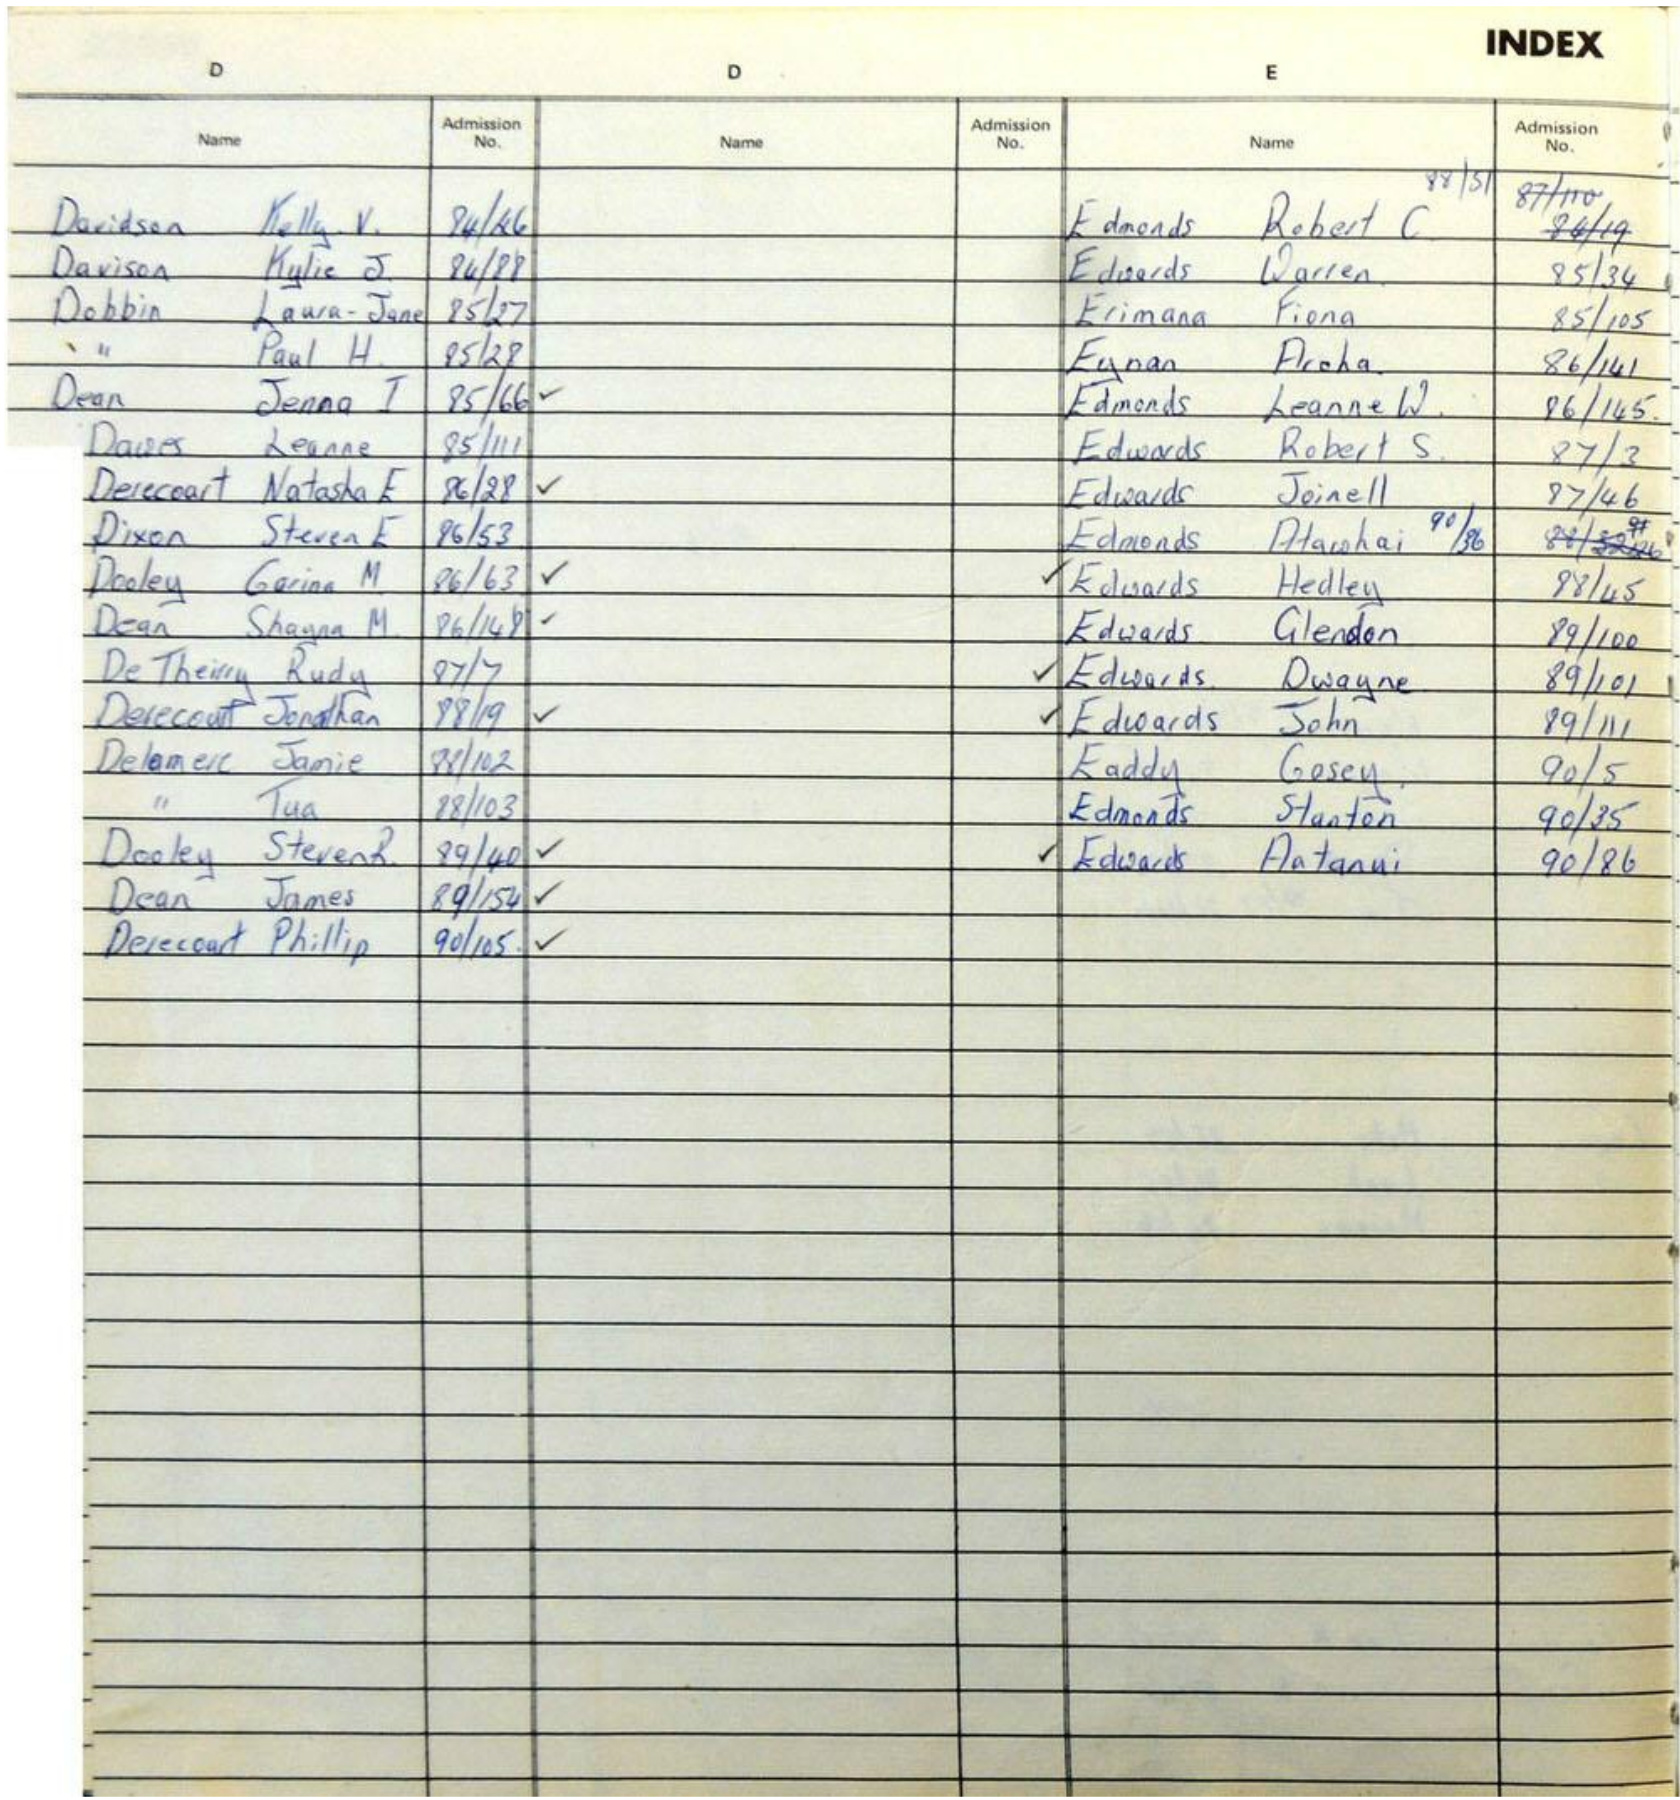 INDEX
D D E
Name Admission No. Name Admission No. Name Admission No.
Davidson Kelly V. 84/46
Davison Kylie J. 84/88
Dobbin Laura-Jane 85/27
" Paul H. 85/28
Dean Jenna I 85/66 ✓
Dawes Leanne 85/111
Derecourt Natasha E 86/28 ✓
Dixon Steven E 86/53
Dooley Garina M. 86/63 ✓
Dean Shayna M. 86/148 ✓
De Theirry Rudy 87/7
Derecourt Jonathan 88/19 ✓
Delamere Jamie 88/102
" Tua 88/103
Dooley Steven R. 89/40 ✓
Dean James 89/154 ✓
Derecourt Phillip 90/105. ✓
88/51 87/110
Edmonds Robert C. 84/19
Edwards Warren 85/34
Erimana Fiona 85/105
Eynan Aroha 86/141
Edmonds Leanne W. 86/145.
Edwards Robert S. 87/3
Edwards Joinell 87/46
Edmonds Atawhai 90/36
✓ Edwards Hedley 88/45
Edwards Glendon 89/100
✓ Edwards Dwayne 89/101
✓ Edwards John 89/111
Eaddy Gosey 90/5
Edmonds Stanton 90/35
✓ Edwards Aatanui 90/86